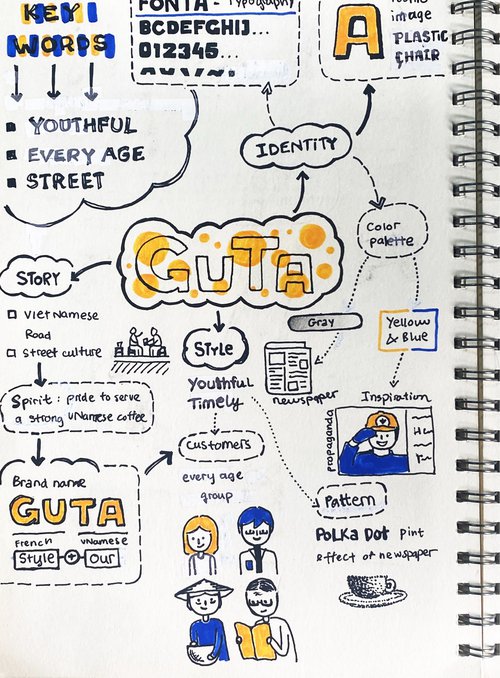 KEY
WORDS
YOUTHFUL
EVERY AGE
STREET
FONTA - Typography
BCDEFGHIJ...
012345...
A
image
PLASTIC
CHAIR
IDENTITY
Color
palette
GUTA
STORY
Vietnamese
Road
Street culture
Spirit: pride to serve
a strong VNamese coffee
Brand name
GUTA
French
VNamese
Style + Our
STYLE
Youthful
Timely
Customers
every age
group
Gray
newspaper
Yellow
& Blue
Inspiration
propaganda
Pattern
POLKA DOT pint
effect of newspaper